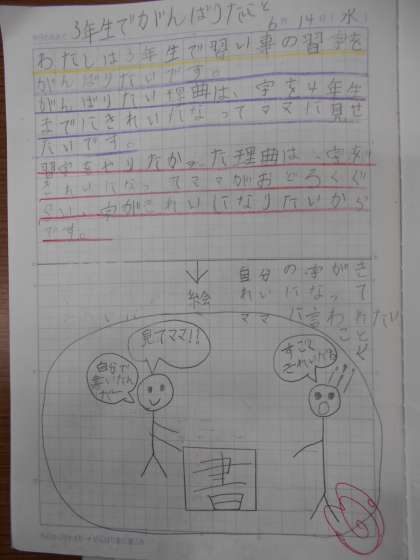 3年生でがんばりたこと
6月14日(水)
わたしは3年生で習い事の習字を
がんばりたいです。
がんばりたい理曲は、字を4年生
までにきれいになってママに見せ
たいです。
習字をやりたかった理曲は、字を
きれいになってママがおどろくぐ
らい、字がきれいになりたいから
です。
自分の字がき
れいになって
ママに言われたい
ことや
絵
見てママ!!
自分で
書いたんだ
よー
すごく
きれいだね
書